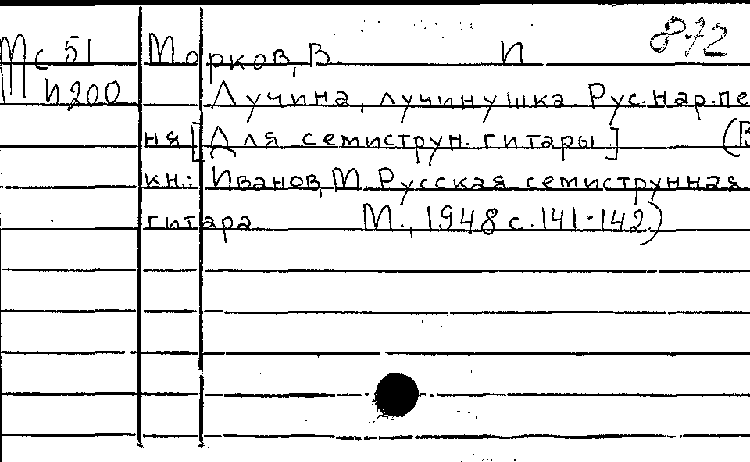 872
Мс 51 Морков, В. И
П200 Лучина, лучинушка. Рус. нар. пе
ня [Для семиструн. гитары.] (В
кн.: Иванов, М. Русская семиструнная
гитара М., 1948 с. 141-142)